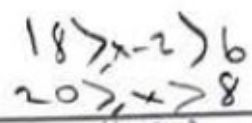 18 ⩾ x-2 > 6
20 ⩾ x > 8